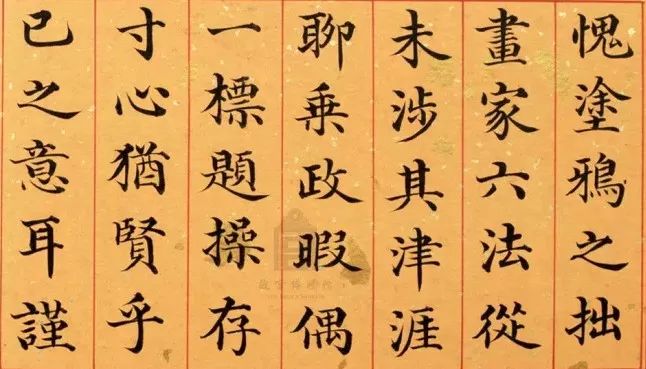 愧塗鴉之拙
畫家六法從
未涉其津涯
聊乗政暇偶
一標題操存
寸心猶賢乎
已之意耳謹
故宮博物院